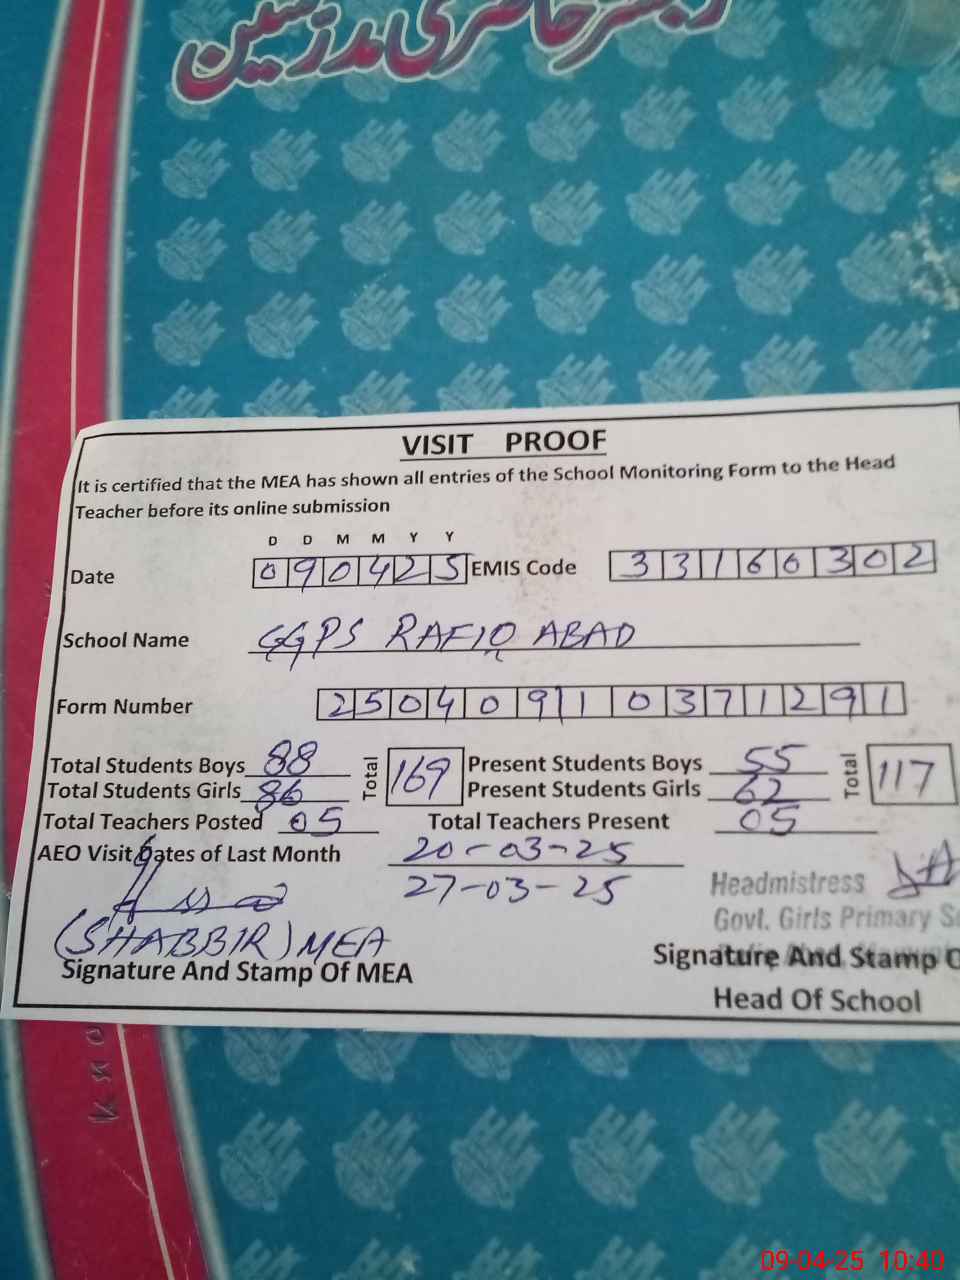 رجسٹر حاضری مدرسین
VISIT PROOF
It is certified that the MEA has shown all entries of the School Monitoring Form to the Head
Teacher before its online submission
D D M M Y Y
Date 090425 EMIS Code 33160302
School Name GGPS RAFIQ ABAD
Form Number 25040910371291
Total Students Boys 88 Total 169 Present Students Boys 55 Total 117
Total Students Girls 86 Present Students Girls 62
Total Teachers Posted 05 Total Teachers Present 05
AEO Visit Dates of Last Month 20-03-25
27-03-25
Headmistress
Govt. Girls Primary
(SHABBIR) MEA
Signature And Stamp Of MEA Signature And Stamp O
Head Of School
09-04-25 10:40